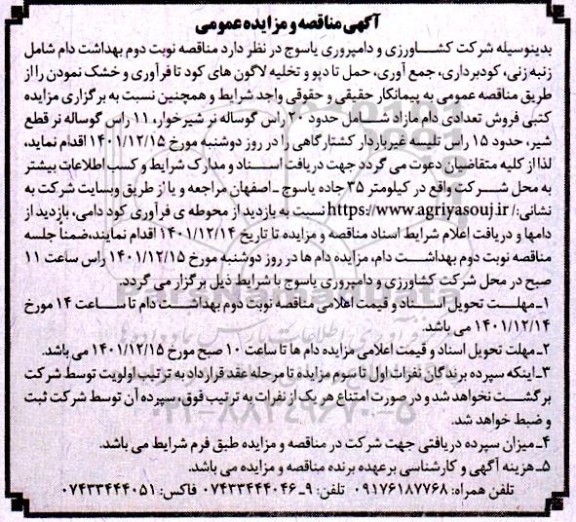 آگهی مناقصه و مزایده عمومی
بدینوسیله شرکت کشاورزی و دامپروری یاسوج در نظر دارد مناقصه نوبت دوم بهداشت دام شامل
زنبه زنی، کودبرداری، جمع آوری، حمل تا دپو و تخلیه لاگون های کود تا فرآوری و خشک نمودن را از
طریق مناقصه عمومی به پیمانکار حقیقی و حقوقی واجد شرایط و همچنین نسبت به برگزاری مزایده
کتبی فروش تعدادی دام مازاد شامل حدود ۲۰ راس گوساله نر شیرخوار، ۱۱ راس گوساله نر قطع
شیر، حدود ۱۵ راس تلیسه غیرباردار کشتارگاهی را در روز دوشنبه مورخ ۱۴۰۱/۱۲/۱۵ اقدام نماید،
لذا از کلیه متقاضیان دعوت می گردد جهت دریافت اسناد و مدارک شرایط و کسب اطلاعات بیشتر
به محل شرکت واقع در کیلومتر ۳۵ جاده یاسوج ـ اصفهان مراجعه و یا از طریق وبسایت شرکت به
نشانی: https://www.agriyasouj.ir/ نسبت به بازدید از محوطه ی فرآوری کود دامی، بازدید از
دامها و دریافت اعلام شرایط اسناد مناقصه و مزایده تا تاریخ ۱۴۰۱/۱۲/۱۴ اقدام نمایند، ضمناً جلسه
مناقصه نوبت دوم بهداشت دام، مزایده دام ها در روز دوشنبه مورخ ۱۴۰۱/۱۲/۱۵ راس ساعت ۱۱
صبح در محل شرکت کشاورزی و دامپروری یاسوج با شرایط ذیل برگزار می گردد.
۱ـ مهلت تحویل اسناد و قیمت اعلامی مناقصه نوبت دوم بهداشت دام تا ساعت ۱۴ مورخ
۱۴۰۱/۱۲/۱۴ می باشد.
۲ـ مهلت تحویل اسناد و قیمت اعلامی مزایده دام ها تا ساعت ۱۰ صبح مورخ ۱۴۰۱/۱۲/۱۵ می باشد.
۳ـ اینکه سپرده برندگان نفرات اول تا سوم مزایده تا مرحله عقد قرارداد به ترتیب اولویت توسط شرکت
برگشت نخواهد شد و در صورت امتناع هر یک از نفرات به ترتیب فوق، سپرده آن توسط شرکت ثبت
و ضبط خواهد شد.
۴ـ میزان سپرده دریافتی جهت شرکت در مناقصه و مزایده طبق فرم شرایط می باشد.
۵ـ هزینه آگهی و کارشناسی برعهده برنده مناقصه و مزایده می باشد.
تلفن همراه: ۰۹۱۷۶۱۸۷۷۶۸ تلفن: ۹ـ۰۷۴۳۳۴۴۴۰۴۶ فاکس: ۰۷۴۳۳۴۴۴۰۵۱
۰۲۱-۸۸۳۴۹۶۷۰-۵